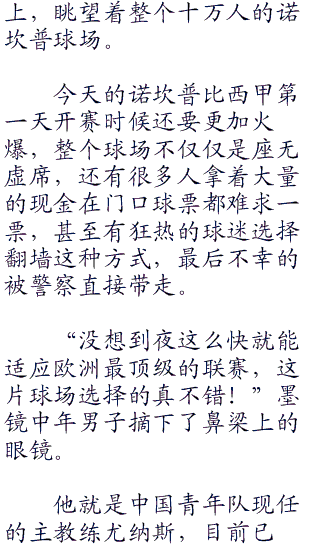 上，眺望着整个十万人的诺
坎普球场。
今天的诺坎普比西甲第
一天开赛时候还要更加火
爆，整个球场不仅仅是座无
虚席，还有很多人拿着大量
的现金在门口球票都难求一
票，甚至有狂热的球迷选择
翻墙这种方式，最后不幸的
被警察直接带走。
“没想到夜这么快就能
适应欧洲最顶级的联赛，这
片球场选择的真不错！”墨
镜中年男子摘下了鼻梁上的
眼镜。
他就是中国青年队现任
的主教练尤纳斯，目前已